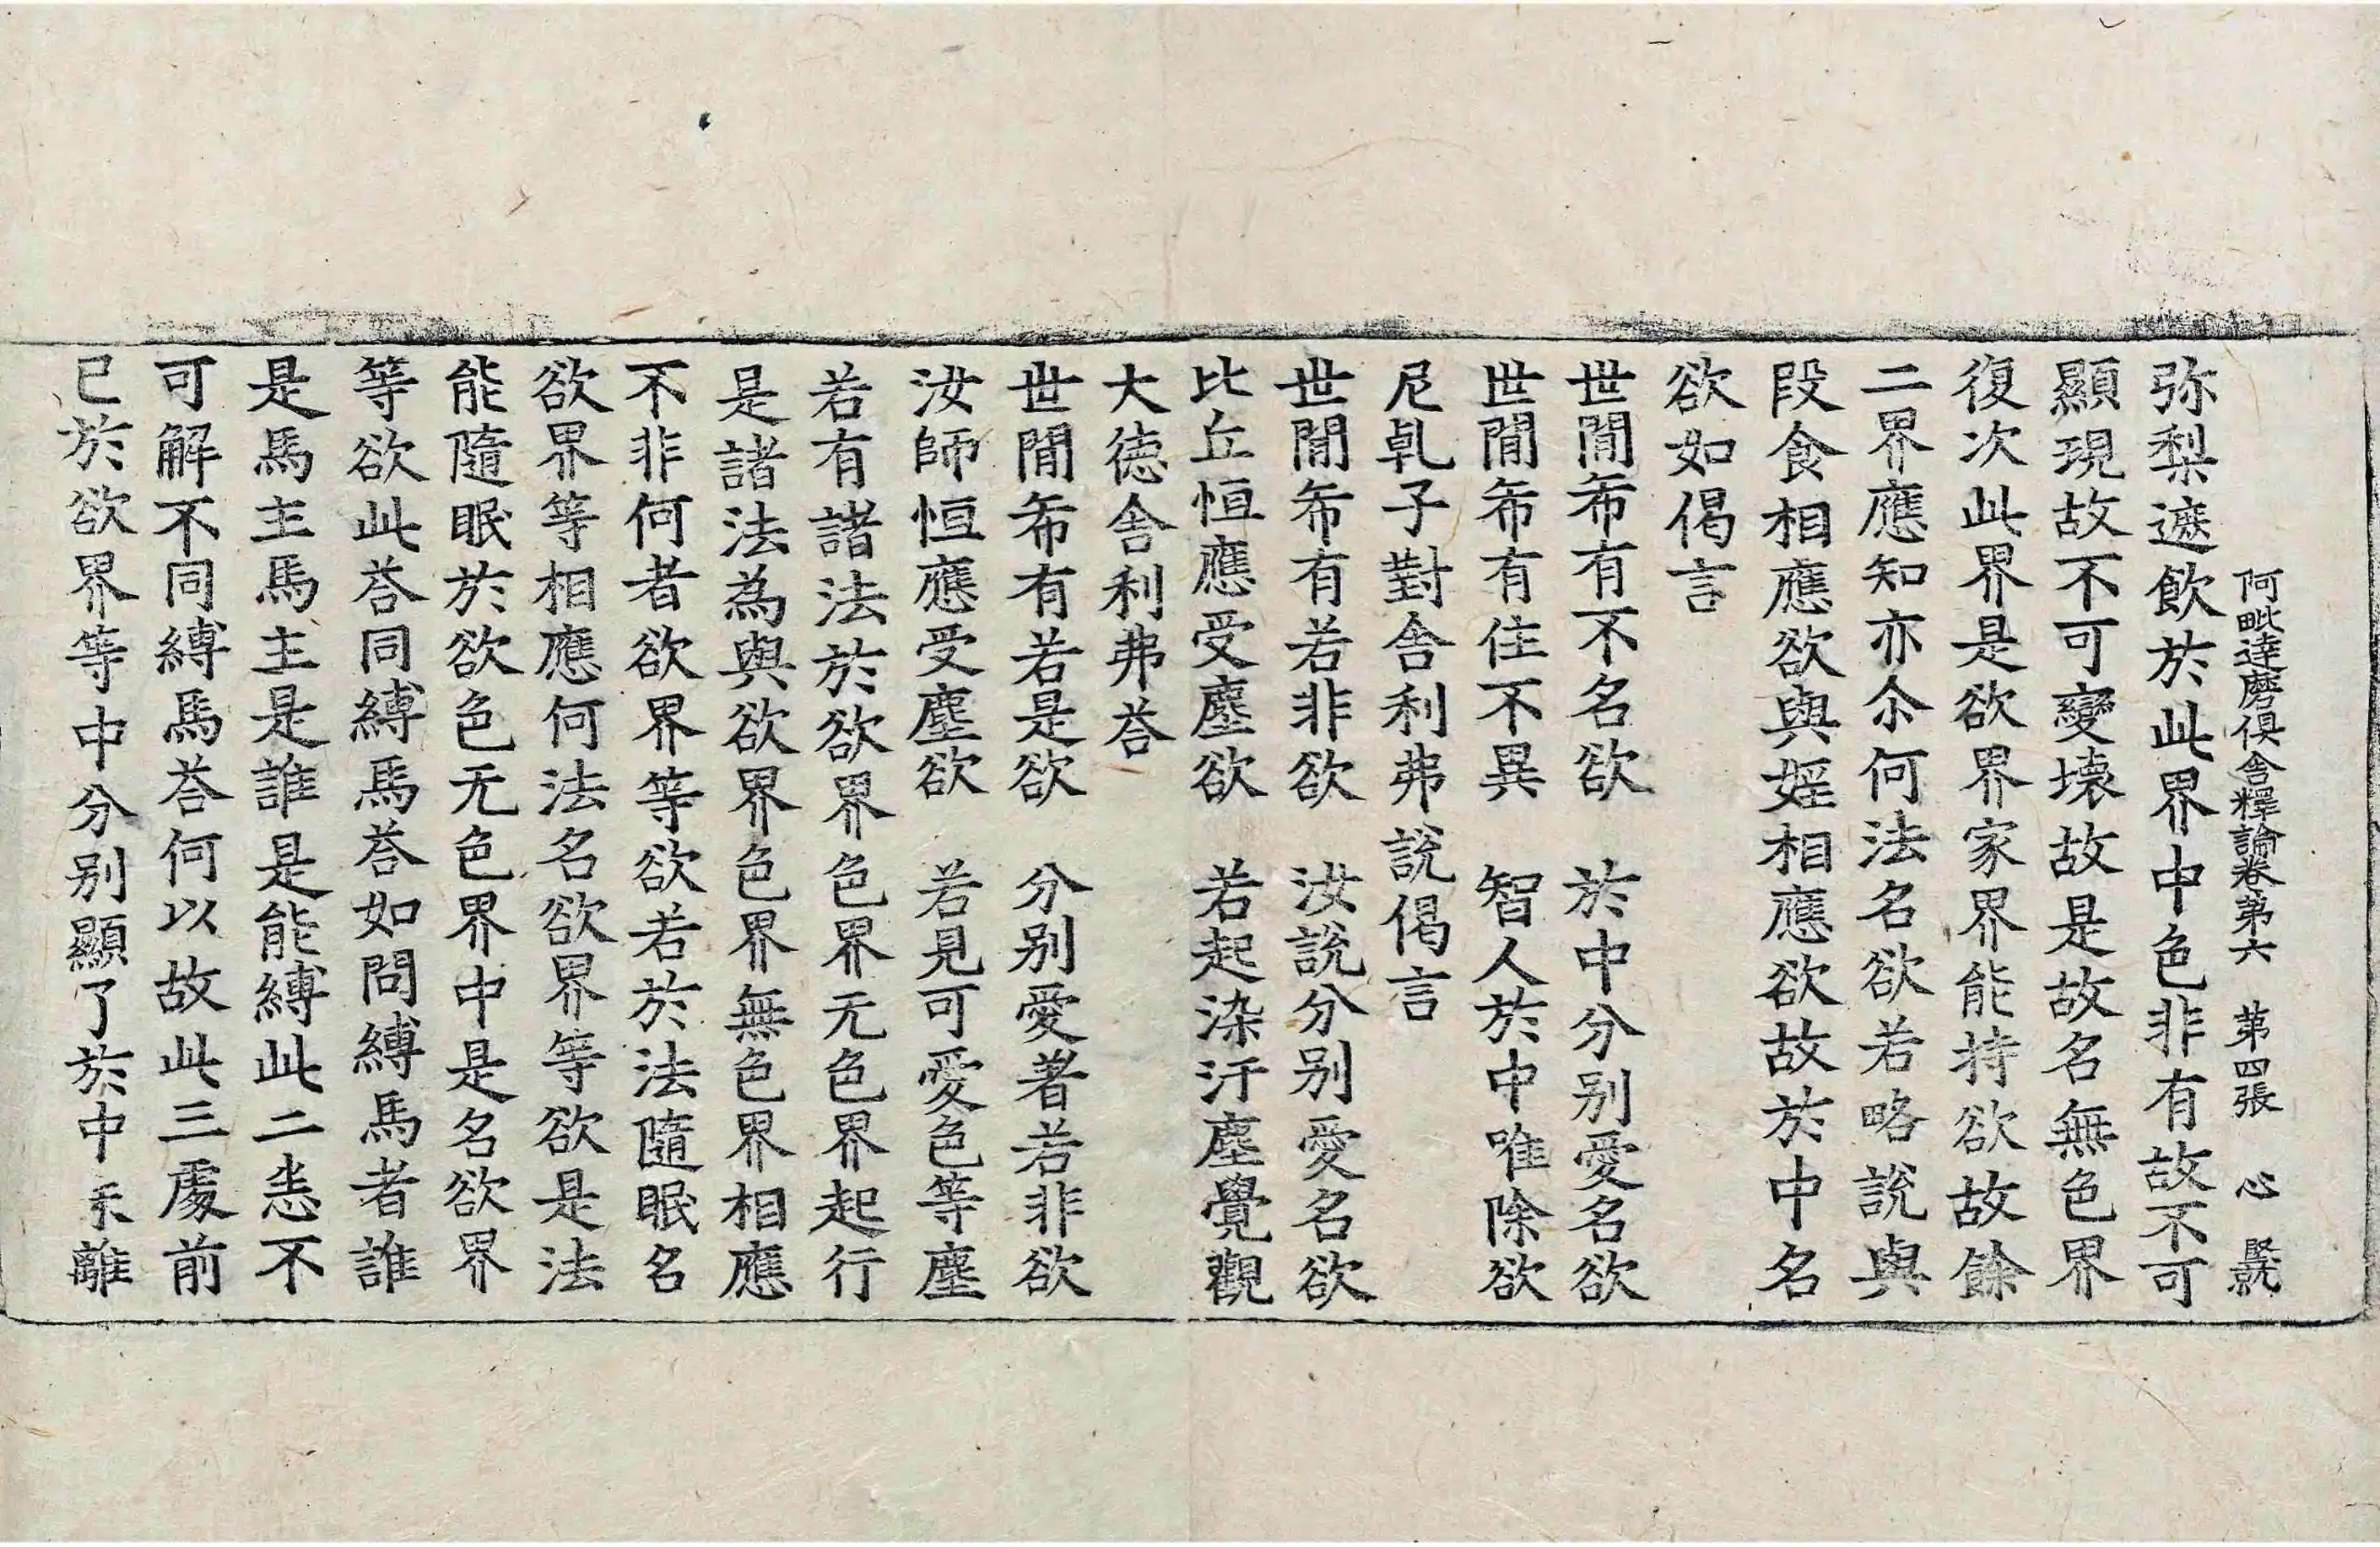 阿毗達磨俱舍釋論卷第六　第四張　心　堅就
弥梨遮飲於此界中色非有故不可
顯現故不可變壞故是故名無色界
復次此界是欲界家界能持欲故餘
二界應知亦尒何法名欲若略說與
段食相應欲與婬相應欲故於中名
欲如偈言
世閒希有不名欲　於中分别愛名欲
世閒希有住不異　智人於中唯除欲
尼乹子對舍利弗說偈言
世閒希有若非欲　汝說分别愛名欲
比丘恒應受塵欲　若起染汙塵覺觀
大徳舍利弗荅
世閒希有若是欲　分别愛著若非欲
汝師恒應受塵欲　若見可愛色等塵
若有諸法於欲界色界无色界起行
是諸法為與欲界色界無色界相應
不非何者欲界等欲若於法隨眠名
欲界等相應何法名欲界等欲是法
能隨眠於欲色无色界中是名欲界
等欲此荅同縛馬荅如問縛馬者誰
是馬主馬主是誰是能縛此二恚不
可解不同縛馬荅何以故此三處前
已於欲界等中分别顯了於中未離